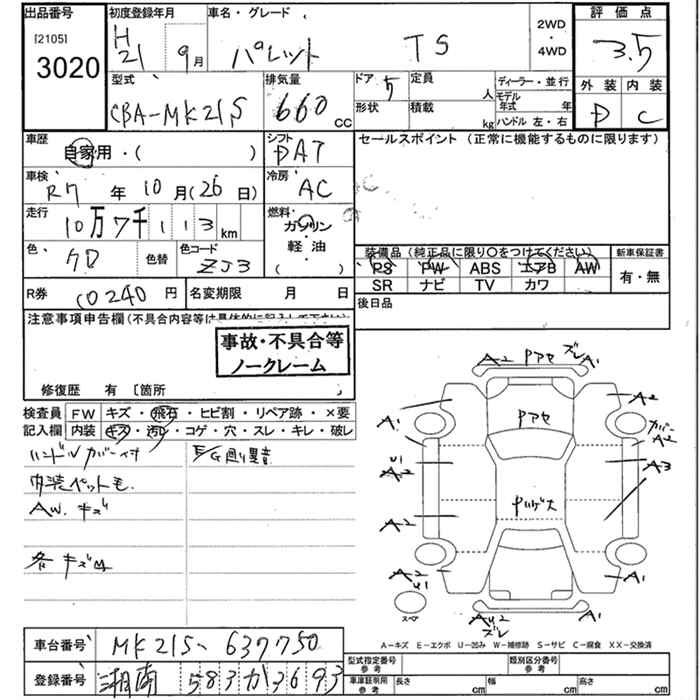 出品番号
[2105]
3020
初度登録年月
H21 9月
車名・グレード
パレット TS
2WD・4WD
評価点
3.5
外装 内装
D C
型式
CBA-MK21S
排気量
660 cc
ドア 5
形状
定員 人
積載 kg
ディーラー・並行
モデル年式 年
ハンドル 左・右
車歴
自家用・( )
シフト
DAT
セールスポイント(正常に機能するものに限ります)
車検
R7年 10月(26日)
冷房
AC
走行
10万7千113km
燃料
ガソリン
軽・油
( )
色
色替
色コード
ZJ3
装備品(純正品に限り〇をつけてください)
PS PW ABS エアB AW
SR ナビ TV カワ
新車保証書
有・無
R券 10240円
名変期限 月 日
後日品
注意事項申告欄(不具合内容等は具体的に記入して下さい)
事故・不具合等
ノークレーム
修復歴 有 〔箇所
検査員記入欄
FW キズ・飛石・ヒビ割・リペア跡・×要
内装 キズ・汚レ・コゲ・穴・スレ・キレ・破レ
ハンドルカバー付
E/G廻り異音
内装ペット毛
AW.キズ
各キズ凹
A2 Pアセ ズレ A1
A1 A2
Pアセ
カバーA2
A2 A3
A2
A2 A1
スペア
ズレ A1
A-キズ E-エクボ U-凹み W-補修跡 S-サビ C-腐食 XX-交換済
車台番号
MK21S-637750
登録番号
湘南 583 か 3693
型式指定番号 参考
類別区分番号 参考
車庫証明用 参考
長さ cm 幅 cm 高さ cm